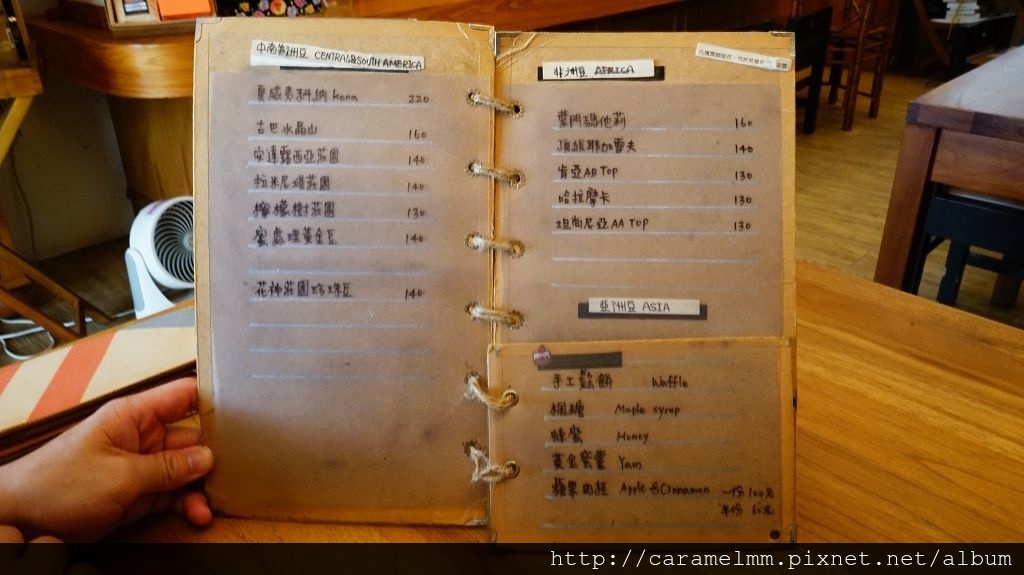 中南美洲豆 CENTRAL&SOUTH AMERICA
夏威夷科納 kona 220
古巴水晶山 160
安達露西亞莊園 140
拉米尼塔莊園 140
檸檬樹莊園 130
蜜處理黃金豆 140
花神莊園珍珠豆 140
非洲豆 AFRICA
葉門瑞他莉 160
頂級耶加雪夫 140
肯亞AB TOP 130
哈拉摩卡 130
坦尚尼亞AA TOP 130
亞洲豆 ASIA
手工鬆餅 Waffle
楓糖 Maple syrup
蜂蜜 Honey
黃金蜜薯 Yam
蘋果肉桂 Apple & Cinnamon 一份100元
半份 60元
http://caramelmm.pixnet.net/album